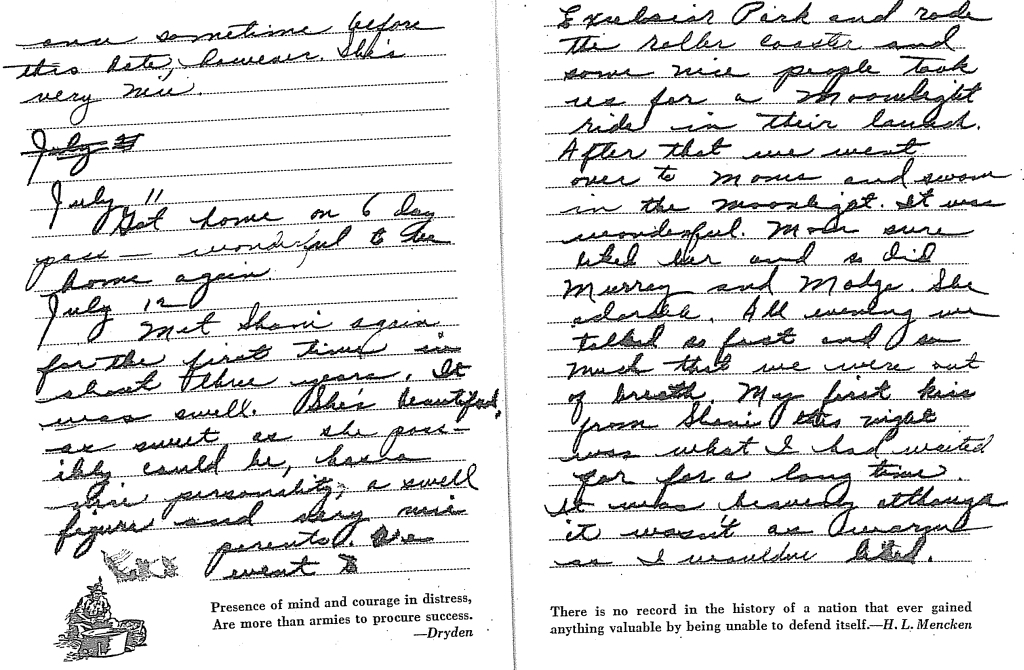 once sometime before
this date, however. She's
very nice.
July
July 11
Got home on 6 day
pass — wonderful to be
home again.
July 12
Met Shani again
for the first time in
about three years. It
was swell. She's beautiful,
as sweet as she poss-
ibly could be, has a
nice personality, a swell
figure and very nice
parents. We
went to
Presence of mind and courage in distress,
Are more than armies to procure success.
—Dryden
Excelsior Park and rode
the roller coaster and
some nice people took
us for a Moonlight
ride in their launch.
After that we went
over to Moms and swam
in the moonlight. It was
wonderful. Mom sure
liked her and so did
Murray and Madge. She
adorable. All evening we
talked so fast and so
much that we were out
of breath. My first kiss
from Shani this night
was what I had waited
for for a long time.
It was heavenly although
it wasn't as warm
as I would've liked.
There is no record in the history of a nation that ever gained
anything valuable by being unable to defend itself.—H. L. Mencken